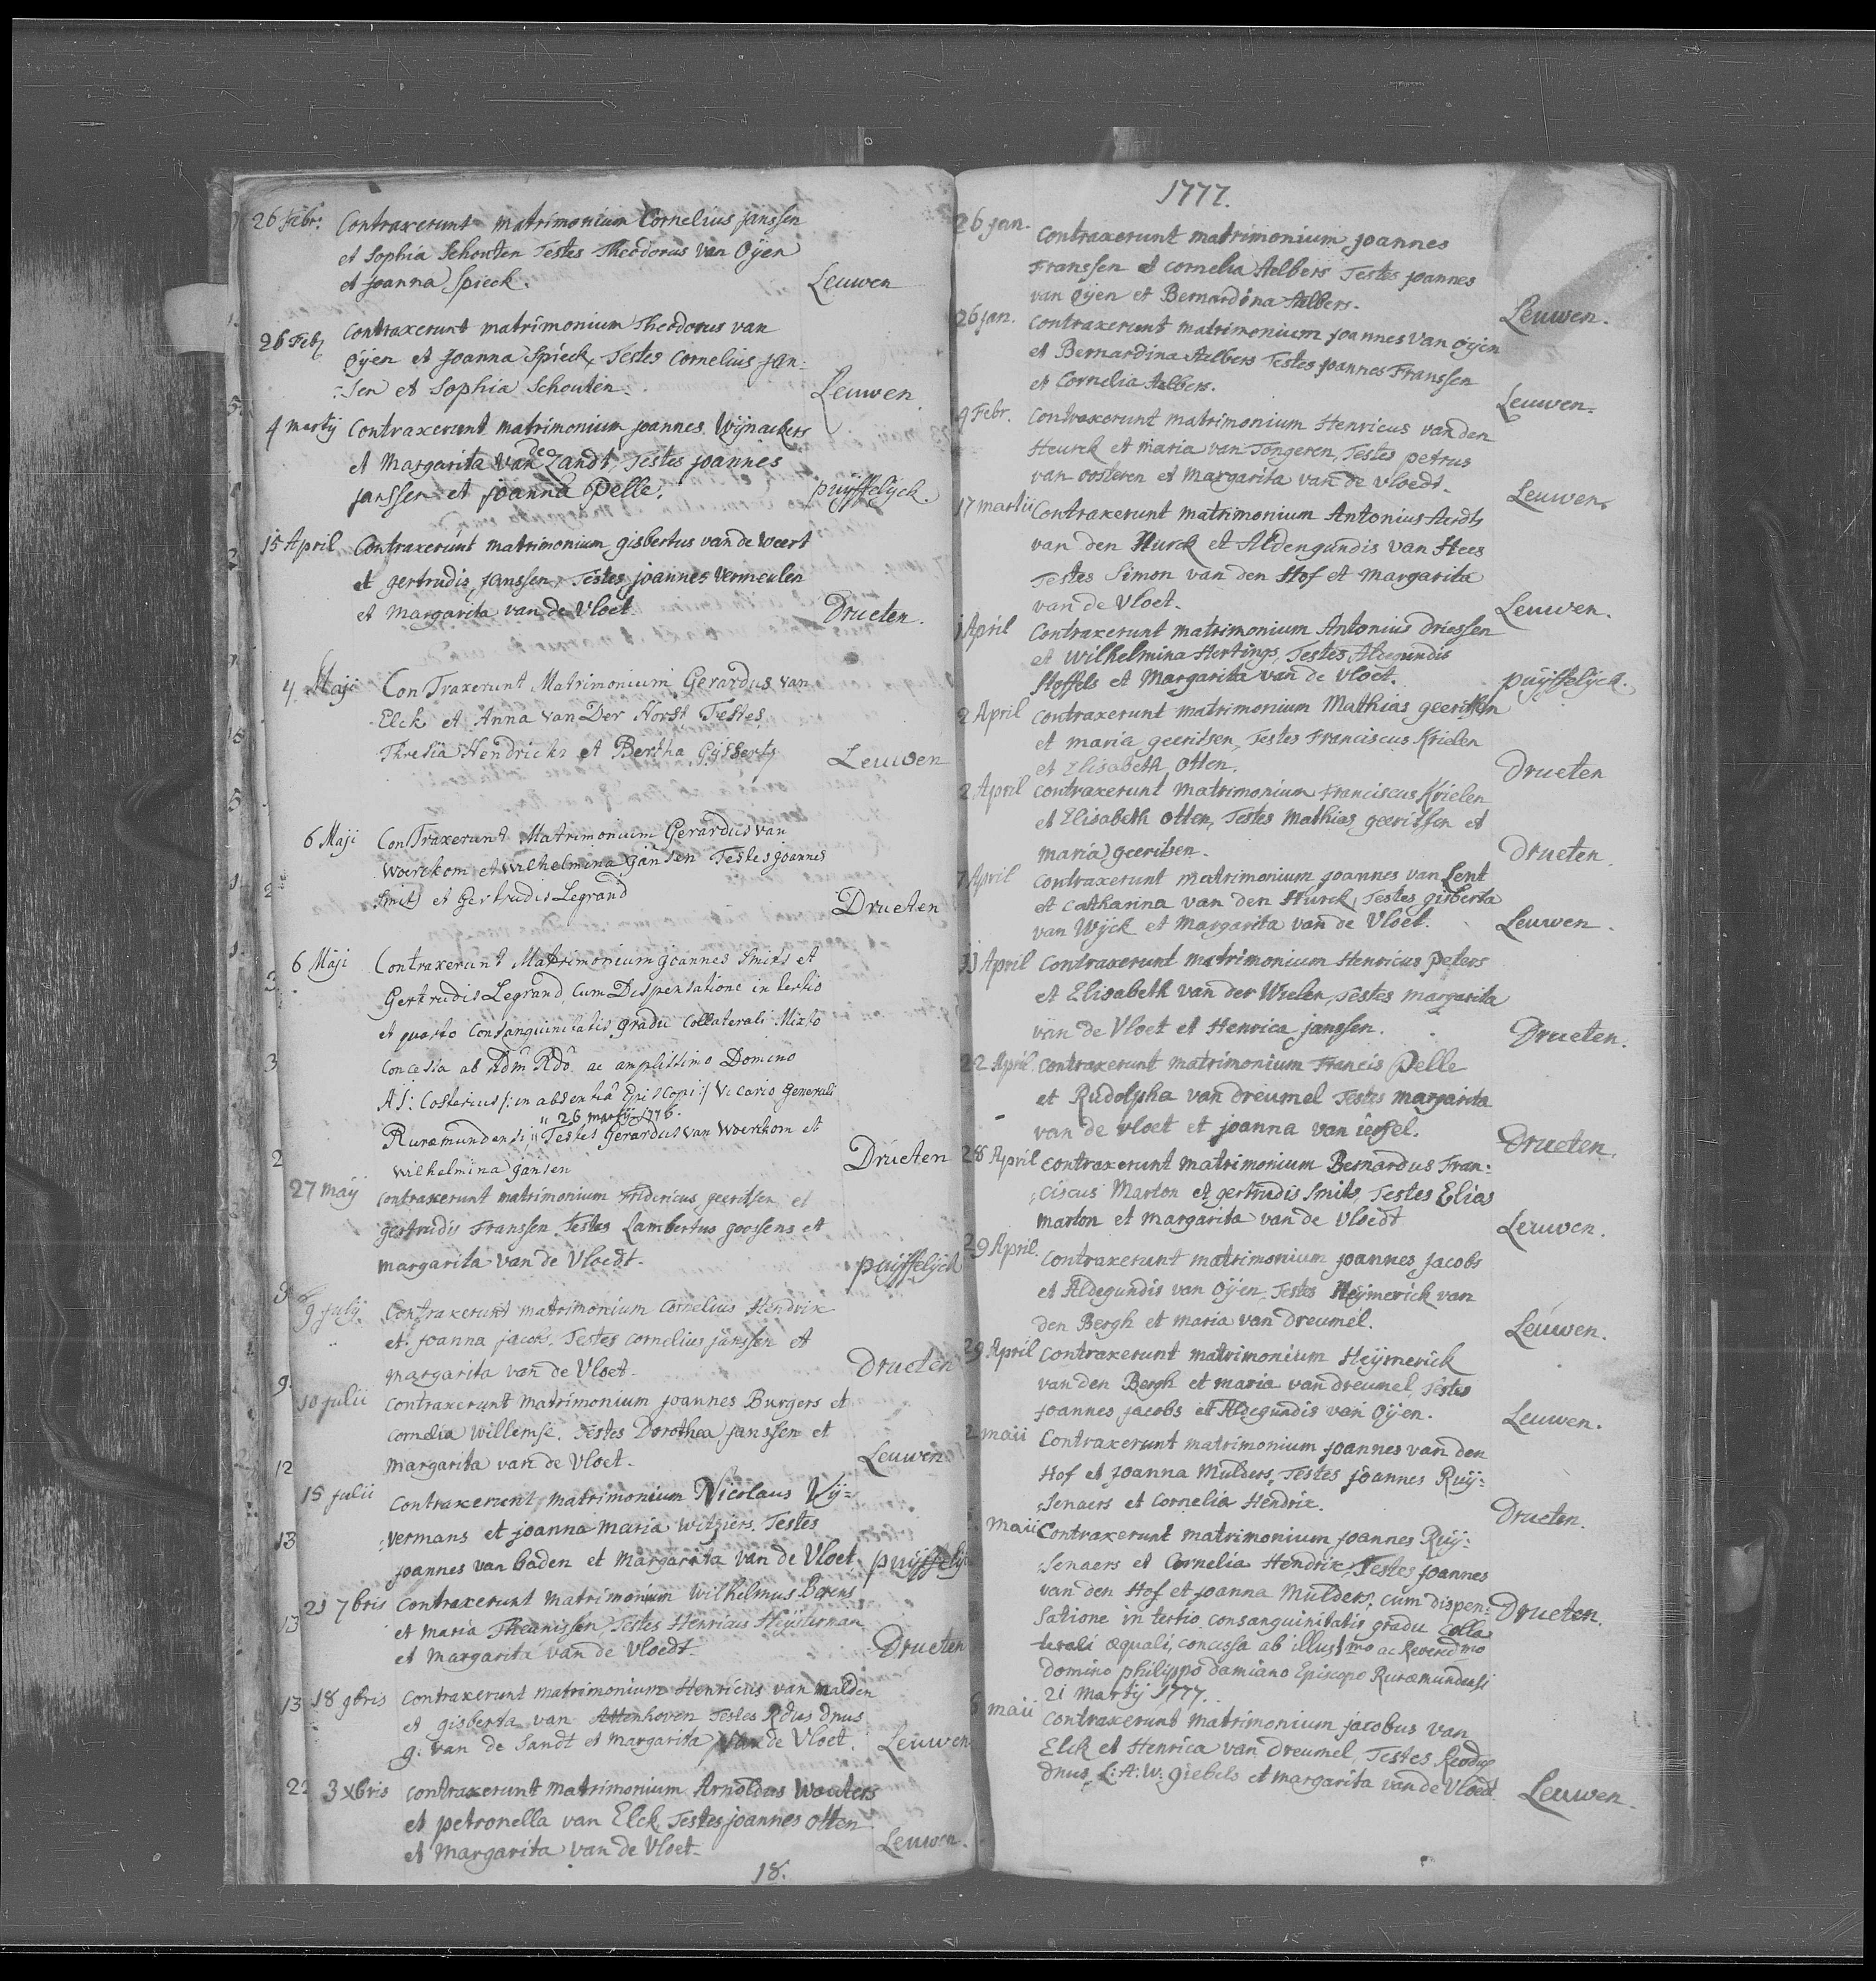 26 Febr. Contraxerunt matrimonium Cornelius janssen
et Sophia Schouten Testes Theodorus van Oijen
et joanna Spieck. Leuwen
26 Feb. Contraxerunt matrimonium Theodorus van
Oijen et Joanna Spieck, Testes Cornelius jan:
:sen et Sophia Schouten. Leuwen
4 martij Contraxerunt matrimonium joannes Wijnackers
et Margarita van de Zandt, Testes joannes
janssen et joanna Pelle. puijffelijck.
15 April Contraxerunt matrimonium gisbertus van de weert
et gertrudis janssen, Testes joannes vermeulen
et Margarita van de Vloet. Drueten.
4 Maji ConTraxerunt Matrimonium Gerardus van
Elck et Anna van Der Horst Testes
Thresia Hendricks et Bertha Gijsberts Leuwen
6 Maji ConTraxerunt Matrimonium Gerardus van
Woerckom et Wilhelmina Jansen Testes joannes
Smits et Gertrudis Legrand Drueten
6 Maji Contraxerunt Matrimonium joannes Smits et
Gertrudis Legrand, Cum Dispensatione in tertio
et quarto Consanguinitatis gradu Collaterali Mixto
Concessa ab Adm Rdo ac amplissimo Domino
A J: Costerius /: in absentia Episcopi :/ Vicario Generali
" 26 martij 1776.
Ruræmundensi, " Testes Gerardus van Woerckom et
Wilhelmina Jansen Drueten
27 maij Contraxerunt matrimonium Fridericus geeritsen et
gertrudis Franssen. Testes Lambertus goossens et
margarita van de Vloedt. puijffelijck
9 julij Contraxerunt matrimonium Cornelius Hendrix
et joanna jacobs. Testes cornelius janssen et
margarita van de Vloet. Drueten
10 julii Contraxerunt matrimonium joannes Burgers et
Cornelia Willemse. Testes Dorothea janssen et
margarita van de Vloet. Leuwen
15 julii Contraxerunt matrimonium Nicolaus Vij=
:vermans et joanna maria witziers. Testes
joannes van baden et margarita van de Vloet. puijffelij
21 7bris Contraxerunt matrimonium Wilhelmus Berens
et maria Theunissen, Testes Henricus Heijsterman
et Margarita van de Vloedt. Drueten
18 9bris Contraxerunt matrimonium Henricus van malden
et gisberta van Attenhoven Testes Rdus dnus
g: van de Sandt et Margarita van de Vloet. Leuwen
3 Xbris Contraxerunt matrimonium Arnoldus Wouters
et petronella van Elck, Testes joannes otten
et Margarita van de Vloet. Leuwen.
18.
1777.
26 jan. Contraxerunt matrimonium joannes
Franssen et Cornelia Aelbers Testes joannes
van Oijen et Bernardina Aelbers. Leuwen.
26 jan. Contraxerunt matrimonium joannes van oijen
et Bernardina Aelbers Testes joannes Franssen
et Cornelia Aelbers. Leuwen.
9 Febr. Contraxerunt matrimonium Henricus van den
Heurck et maria van Tongeren, Testes petrus
van oosteren et Margarita van de vloedt. Leuwen.
17 martii Contraxerunt matrimonium Antonius Aerdts
van den Hurck et Aldengundis van Hees
Testes Simon van den Hof et Margarita
van de Vloet. Leuwen.
1 April Contraxerunt matrimonium Antonius driessen
et Wilhelmina Hertings, Testes Aldegundis
Stoffels et Margarita van de Vloet. puijffelijck.
2 April Contraxerunt matrimonium Mathias geeritsen
et maria geeritsen, Testes Franciscus Krielen
et Elisabeth Otten. Drueten
2 April Contraxerunt matrimonium Franciscus Krielen
et Elisabeth Otten, Testes Mathias geeritsen et
maria geeritsen. Drueten.
7 April Contraxerunt matrimonium joannes van Lent
et Catharina van den Hurck, Testes gisberta
van Wijck et Margarita van de Vloet. Leuwen.
11 April Contraxerunt matrimonium Henricus peters
et Elisabeth van der Wielen, Testes margarita
van de Vloet et Henrica janssen. Drueten.
22 April Contraxerunt matrimonium Francis Pelle
et Rudolpha van dreumel Testes margarita
van de vloet et joanna van ierssel. Drueten.
28 April Contraxerunt matrimonium Bernardus Fran:
:ciscus Marton et gertrudis Smits, Testes Elias
Marton et Margarita van de Vloedt Leuwen.
29 April Contraxerunt matrimonium joannes jacobs
et Aldegundis van Oijen, Testes Heijmerick van
den Bergh et maria van dreumel. Leuwen.
29 April Contraxerunt matrimonium Heijmerick
van den Bergh et maria van dreumel, Testes
joannes jacobs et Aldegundis van Oijen. Leuwen.
2 maii Contraxerunt matrimonium joannes van den
Hof et joanna Mulders, Testes joannes Ruij:
:senaers et Cornelia Hendrix. Drueten.
maii Contraxerunt matrimonium joannes Ruij:
:senaers et Cornelia Hendrix, Testes joannes
van den Hof et joanna Mulders, cum dispen: Drueten.
satione in tertio consanguinitatis gradu Colla
terali æquali, concessa ab illustmo ac Reverendmo
domino philippo damiano Episcopo Ruræmundensi
21 martij 1777.
maii Contraxerunt matrimonium jacobus van
Elck et Henrica van dreumel, Testes Revdus
dnus L: A: W: giebels et margarita van de Vloed Leuwen.